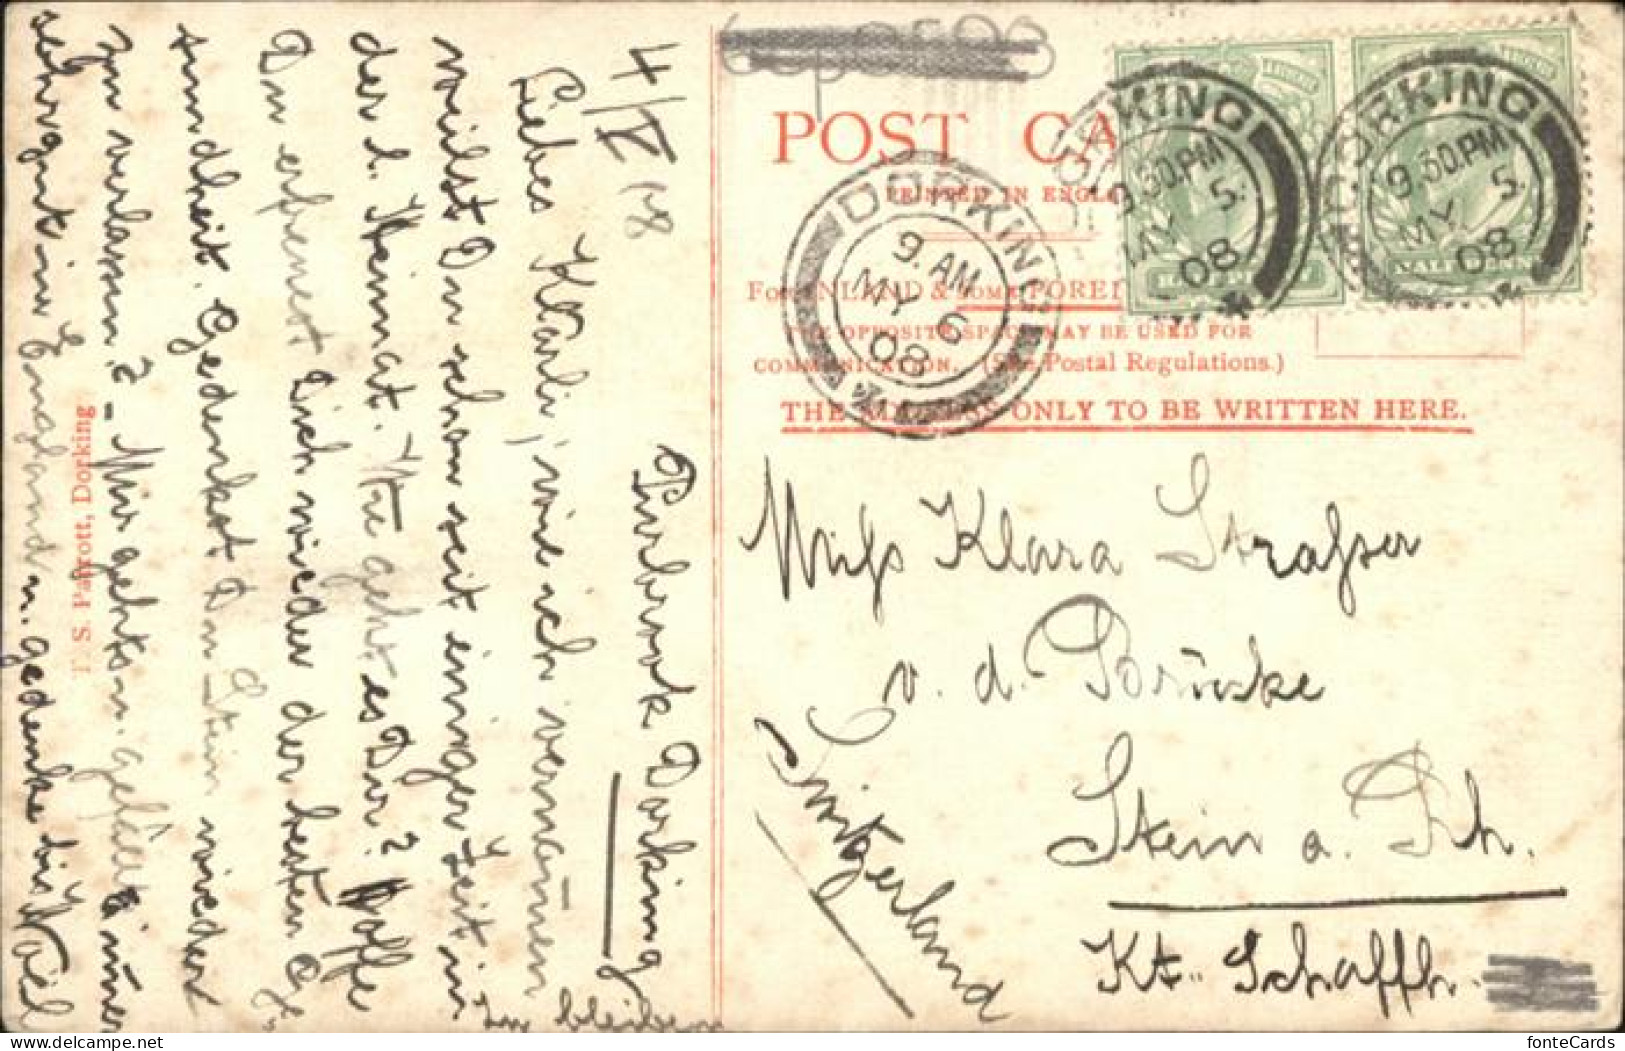 4/V 08
Purbrook Dorking
Liebes Klärli, wie ich vernommen
weilst Du schon seit einiger Zeit in
der l. Heimat. Wie geht es Dir? Hoffe
Du erfreust Dich wieder der besten Ge-
sundheit. Gedenkst Du Stein wieder
zu verlassen? - Mir geht's u. gefällt's immer
sehr gut in England u. gedenke bis
zu bleiben
T. S. Parrott, Dorking
POST CA
PRINTED IN ENGL
FOR INLAND & SOME FOREI
THE OPPOSITE SPACE MAY BE USED FOR
COMMUNICATION. (See Postal Regulations.)
THE ADDRESS ONLY TO BE WRITTEN HERE.
DORKING
9. AM
MY 6
08
DORKING
9.30.PM
MY 5
08
DORKING
9.30.PM
MY 5
08
HALFPENNY
Miss Klara Strasser
v. d. Brücke
Stein a. Rh.
Kt. Schaffh.
Switzerland
fonteCards